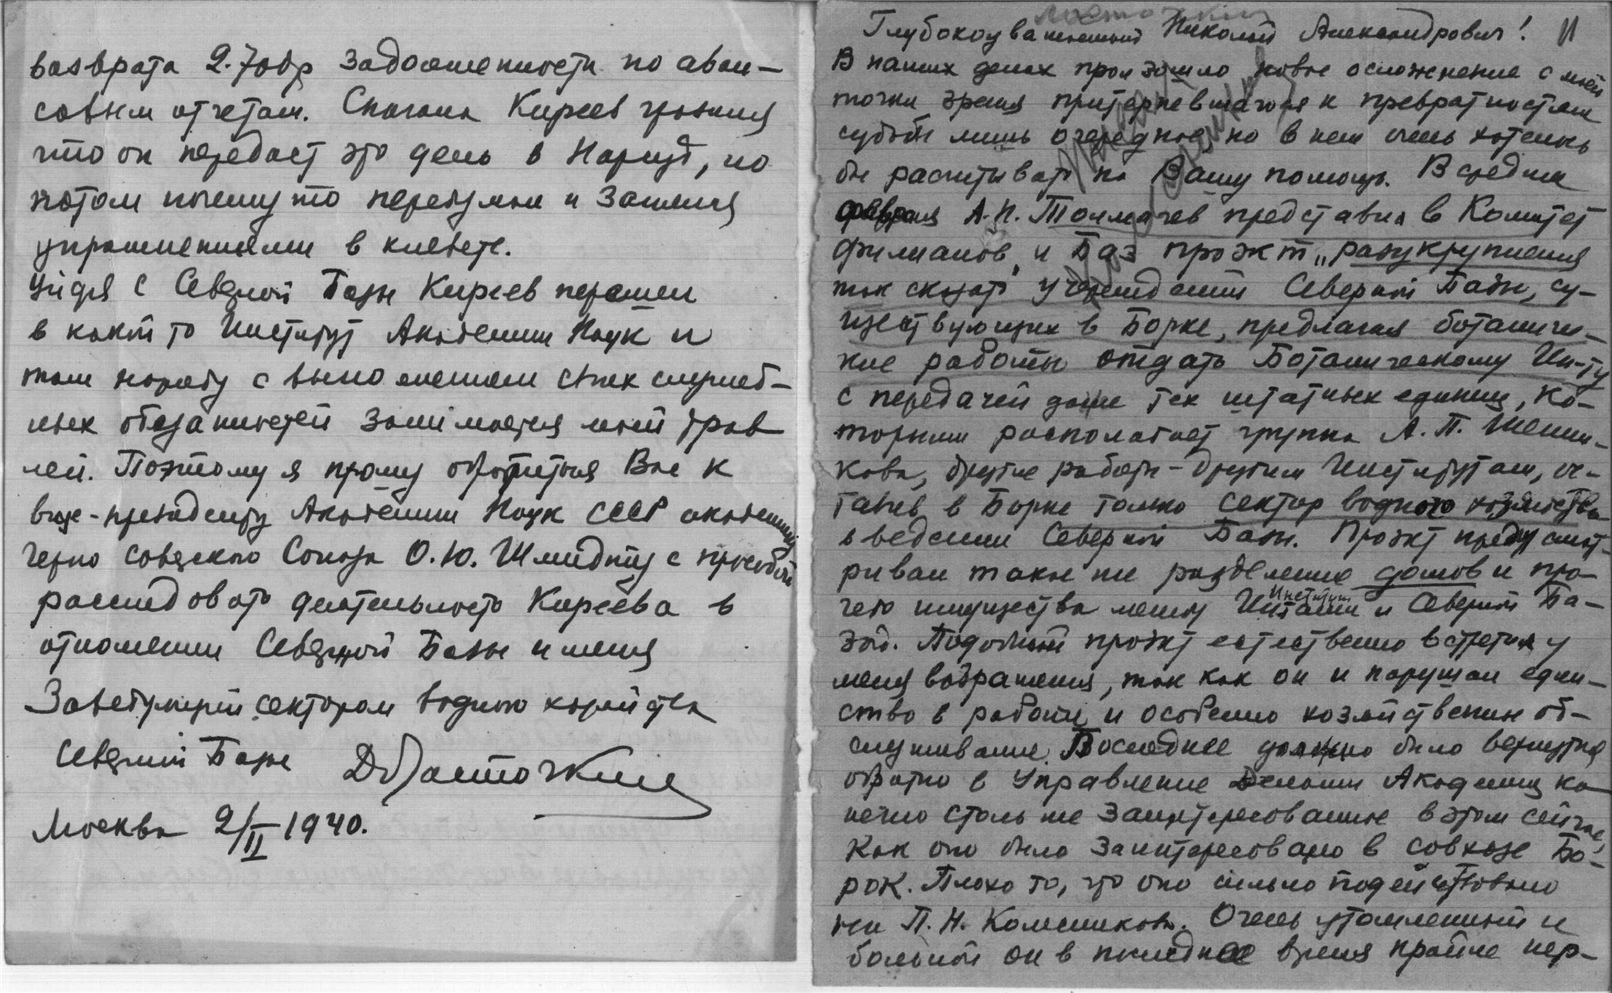 возврата 2.700р задолженности по аван-
совым отчетам. Сначала Киреев грозил
что он передаст это дело в Нарсуд, но
потом почему то передумал и занялся
упражнениями в клевете.
Уйдя с Северной Базы Киреев перешел
в какой то Институт Академии Наук и
там наряду с выполнением своих служеб-
ных обязанностей занимается моей трав
лей. Поэтому я прошу обратиться Вас к
вице-президенту Академии Наук СССР академику
Герою Советского Союза О.Ю. Шмидту с просьбой
расследовать деятельность Киреева в
отношении Северной Базы и меня
Заведующий сектором водного хозяйства
Северной Базы ДЛасточкин
Москва 2/II 1940.
Ласточкин
Глубокоуважаемый Николай Александрович!
В наших делах произошло новое осложнение с моей
точки зрения притерпевшагося к превратностям
судьбы лишь очередное но в нем очень хотелось
бы расчитывать на Вашу помощь. В средине
февраля А.И. Толмачев представил в Комитет
филиалов и Баз проэкт „разукрупнения
так сказать учреждений Северной Базы, су-
ществующих в Борке, предлагая ботаничес-
кие работы отдать Ботаническому Ин-ту
с передачей даже тех штатных единиц, ко-
торыми располагает группа А.П. Шенни-
кова, другие работы - другим Институтам, ос-
тавив в Борке только сектор водного хозяйства
в ведении Северной Базы. Проэкт предусмат-
ривал также разделение домов и про-
чего имущества между Институтами и Северной Ба-
зой. Подобный проэкт естественно встретил у
меня возражения, так как он и нарушал един-
ство в работе и особенно хозяйственное об-
служивание. Последнее должно было вернуться
обратно в Управление Делами Академии ко
нечно столь же заинтересованное в этом сейчас,
как оно было заинтересовано в совхозе Бо-
рок. Плохо то, что оно сильно подействовало
на П.Н. Колесникова. Очень утомленный и
больной он в последнее время крайне нер-